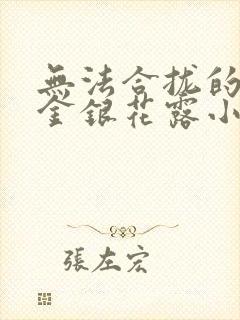 無法合拢的
金銀花露小
張左宏